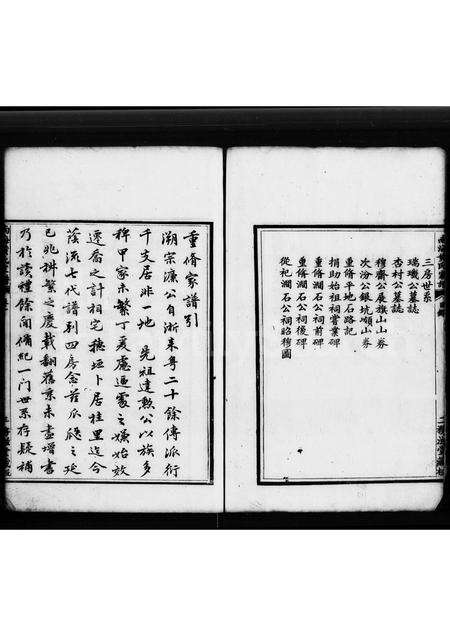 三房世系
瑞璣公墓誌
杏村公墓誌
穆齋公展旗山券
次汾公銀坑嶺山券
重脩平地石路記
捐助始祖嘗業碑
重脩澗石公祠前碑
重脩澗石公祠後碑
從祀澗石公祠昭穆圖
重脩家譜引
溯宗濂公自浙来粤二十餘傳派衍
千支居非一地 先祖達勲公以族多
稗甲家米繁丁爰慮逼處之嫌始效
遷喬之計相宅穗垣卜居桂里迄今
蔭流七代譜列四房念茲瓜瓞之延
已兆椒繁之慶載翻舊桑未盡增書
乃於讀禮餘閒脩紀一門世系存疑補